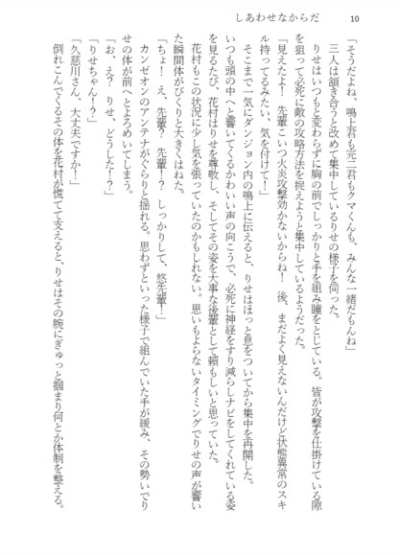 しあわせなからだ
10
「そうだよね、鳴上君も完二君もクマくんも、みんな一緒だもんね」
三人は頷き合うと改めて集中しているりせの様子を伺った。
りせはいつもと変わらずに胸の前でしっかりと手を組み瞳をとじている。皆が攻撃を仕掛けている隙
を狙って必死に敵の攻略方法を捉えようと集中しているようだった。
「見えたよ！　先輩こいつ火炎攻撃効かないからね！　後、まだよく見えないんだけど状態異常のスキ
ル持ってるみたい、気を付けて！」
そこまで一気にダンジョン内の鳴上に伝えると、りせはほっと息をついてから集中を再開した。
いつも頭の中へと響いてくるかわいい声の向こうで、必死に神経をすり減らしナビをしてくれている姿
を見るたび、花村はりせを尊敬し、そしてその姿を大事な後輩として頼もしいと思っていた。
花村もこの状況に少し気を張っていたのかもしれない。思いもよらないタイミングでりせの声が響い
た瞬間体がびくりと大きくはねた。
「ちょ！　え、先輩？　先輩！？　しっかりして、悠先輩！」
カンゼオンのアンテナがぐらりと揺れる。思わずといった様子で組んでいた手が緩み、その勢いでり
せの体が前へとよろめいてしまう。
「お、え？　りせ、どうした！？」
「りせちゃん！？」
「久慈川さん、大丈夫ですか！」
倒れこんでくるその体を花村が慌てて支えると、りせはその腕にぎゅっと掴まり何とか体制を整える。